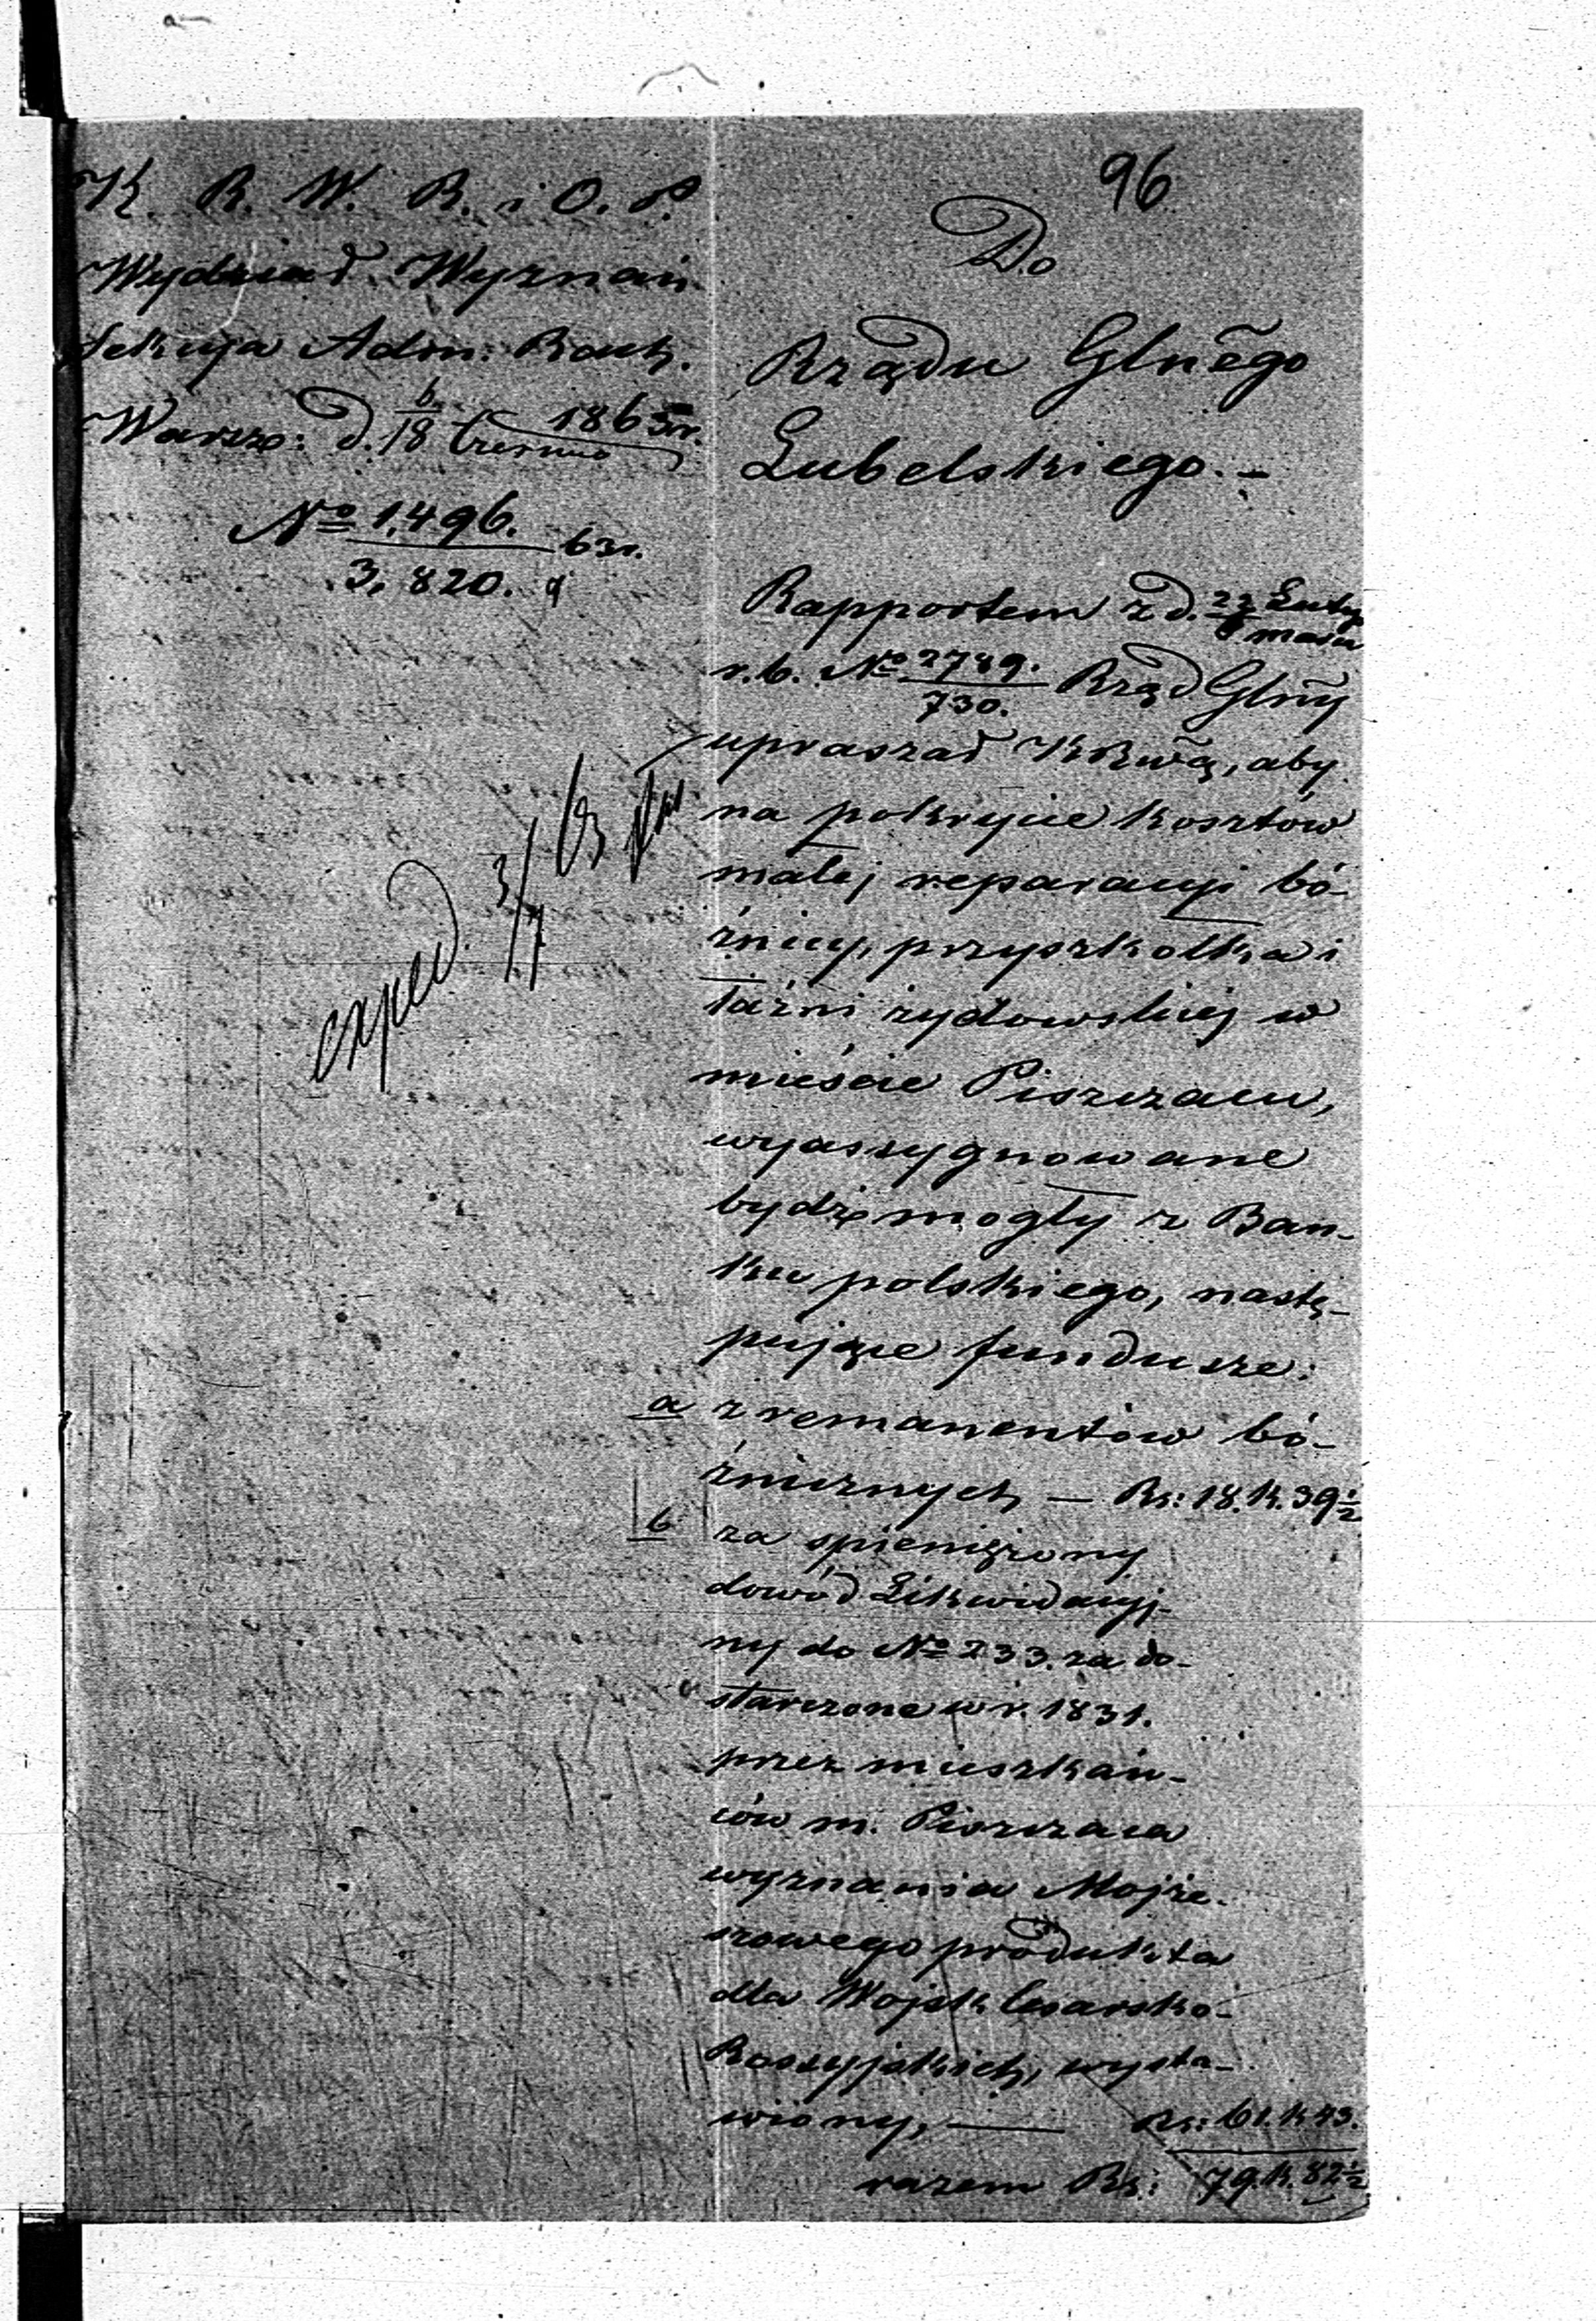 96
K. R. W. R. i O. P.
Wydział Wyznań
Sekcja Adm: Rach.
Warsz: d. 6/18 Czerwca 1863 r.
№ 1,496. / 3,820. 63 r.
exped. 3/7 63
Do
Rządu Glnego
Lubelskiego. -
Rapportem z d. Luty / marca
r. b. № 2789. / 730. Rząd Glny
upraszał KRwą, aby
na pokrycie kosztów
małej reparacyi bó-
żnicy, przyszkółka i
łaźni żydowskiej w
mieście Piszczacu,
wyassygnowane
bydź mogły z Ban-
ku polskiego, nastę-
pujące fundusze:
a z remanentów bó-
żnicznych — Rs: 18. k. 39½
b za spieniężony
dowód Likwidacyj-
ny do № 233. za do-
starczone w r. 1831.
przez mieszkań-
ców m. Piszczaca
wyznania Mojże-
szowego produkta
dla Wojsk Cesarsko-
Rossyjskich, wysta-
wiony, — Rs: 61. k 43.
razem Rs: 79. k. 82½